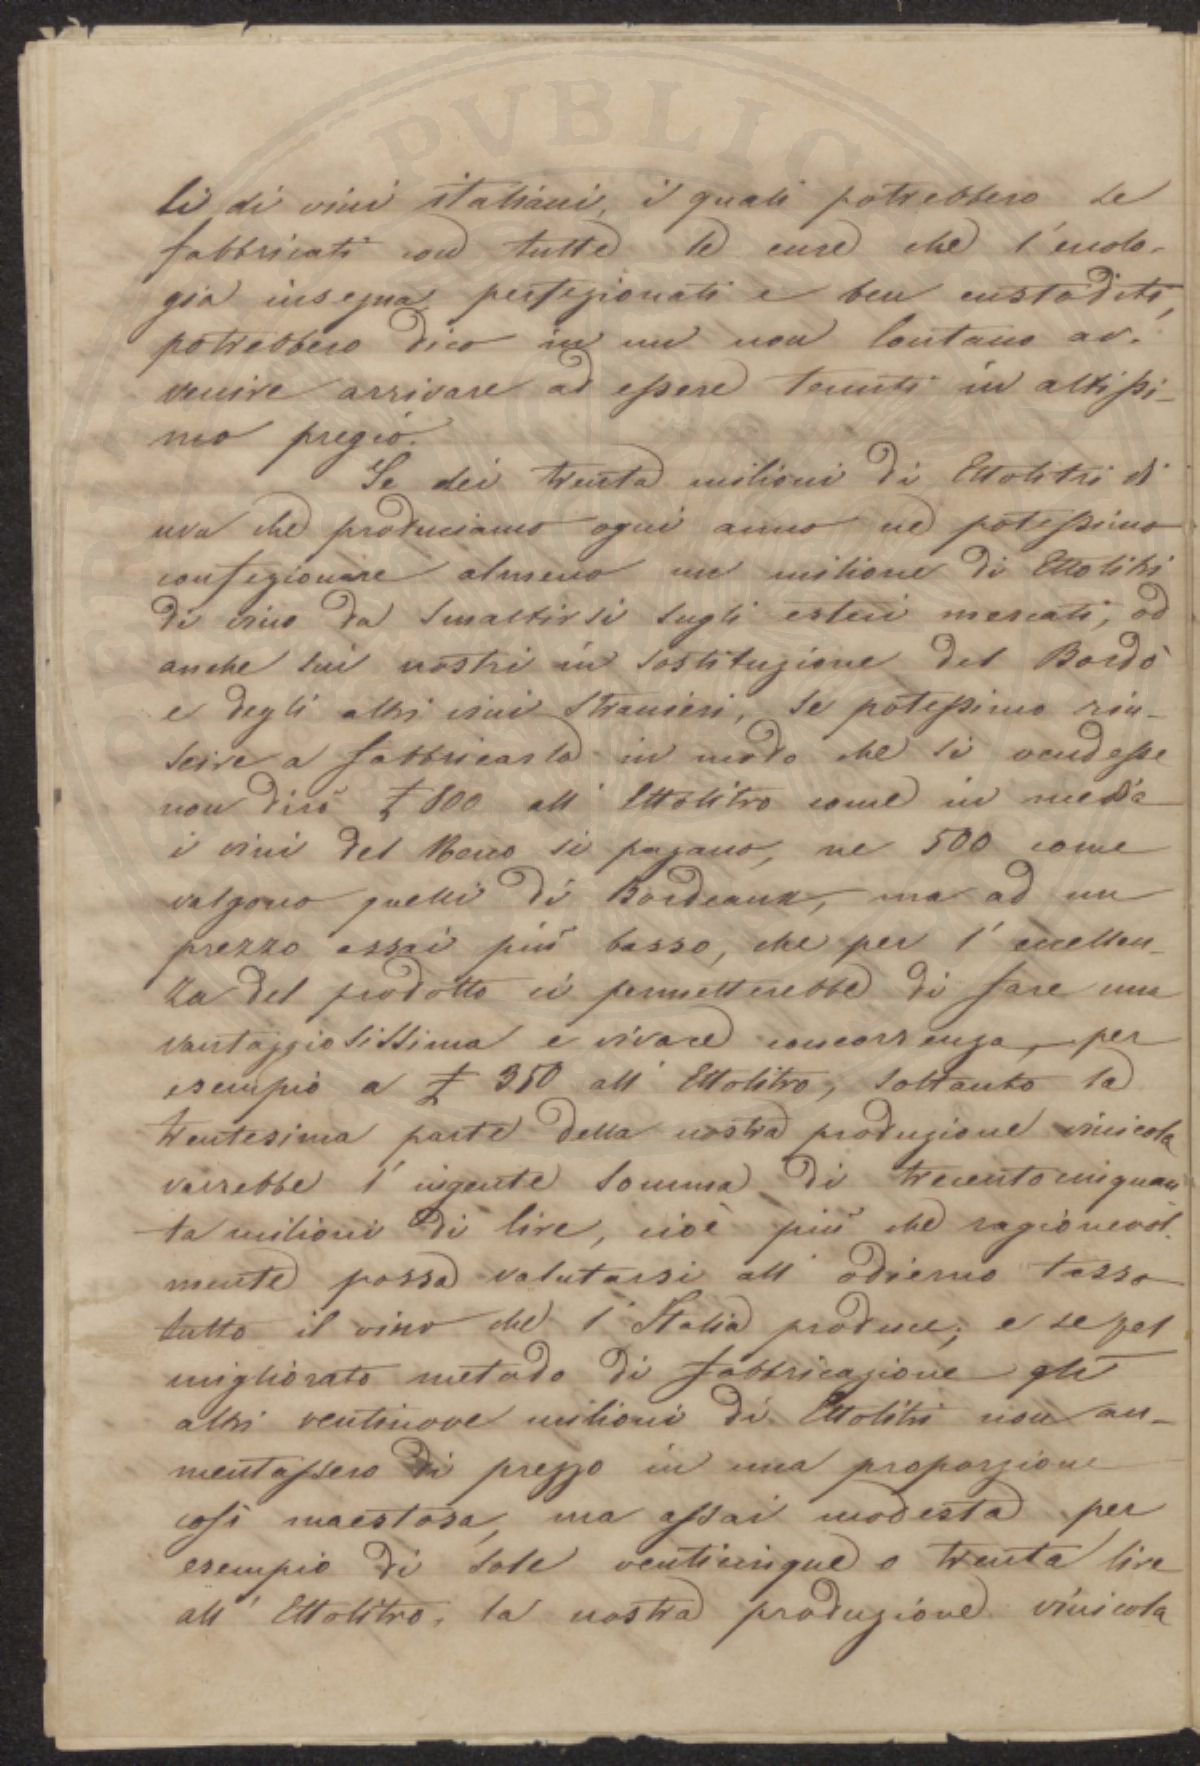 li di vini italiani, i quali potrebbero se
fabbricati con tutte le cure che l'enolo-
gia insegna, perfezionati e ben custoditi,
potrebbero dico in un non lontano av-
venire arrivare ad essere tenuti in altissi-
mo pregio.
Se dei trenta milioni di Ettolitri di
uva che produciamo ogni anno ne potessimo
confezionare almeno un milione di Ettolitri
di vino da smaltirsi sugli esteri mercati, od
anche sui nostri in sostituzione del Bordò
e degli altri vini stranieri, se potessimo riu-
scire a fabbricarlo in modo che si vendesse
non dirò £ 800 all'Ettolitro come in media
i vini del Reno si pagano, ne 500 come
valgono quelli di Bordeaux, ma ad un
prezzo assai più basso, che per l'eccellen-
za del prodotto ci permetterebbe di fare una
vantaggiosissima e vivace concorrenza, per
esempio a £ 350 all'Ettolitro, soltanto la
trentesima parte della nostra produzione vinicola
varrebbe l'ingente somma di trecentocinquan
ta milioni di lire, cioè più che ragionevol-
mente possa valutarsi all'odierno tasso
tutto il vino che l'Italia produce; e se pel
migliorato metodo di fabbricazione gli
altri ventinove milioni di Ettolitri non au-
mentassero di prezzo in una proporzione
così maestosa, ma assai modesta per
esempio di sole venticinque o trenta lire
all'Ettolitro, la nostra produzione vinicola
PVBLIC